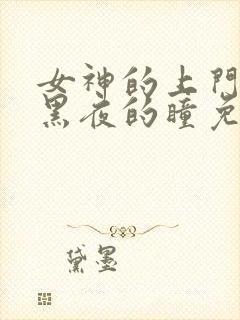 女神的上門
黑夜的瞳免
黛墨